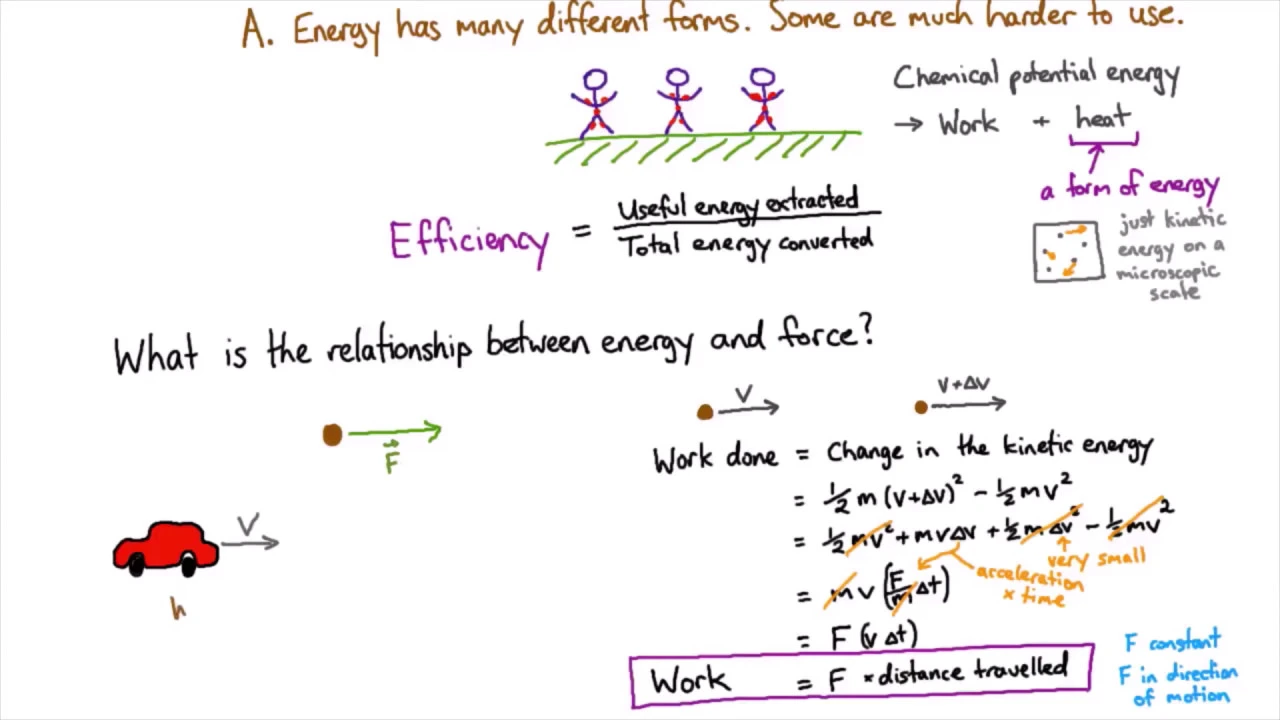 A. Energy has many different forms. Some are much harder to use.
Chemical potential energy
→ Work + heat
a form of energy
just kinetic
energy on a
microscopic
scale
Efficiency = Useful energy extracted / Total energy converted
What is the relationship between energy and force?
F⃗
V
h
V
V+ΔV
Work done = Change in the kinetic energy
= 1/2 m (V+ΔV)² - 1/2 mV²
= 1/2 mV² + mVΔV + 1/2 mΔV² - 1/2 mV²
very small
= mV (F/m Δt)
acceleration
× time
= F (V Δt)
Work = F × distance travelled
F constant
F in direction
of motion